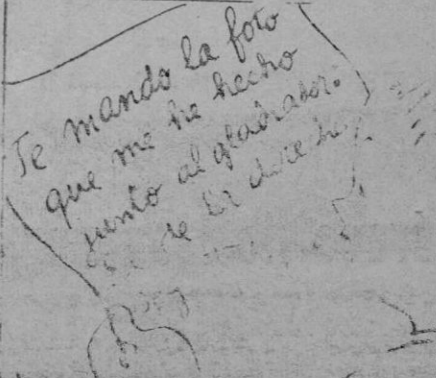 Te mando la foto
que me he hecho
junto al gladiador.
de la derecha